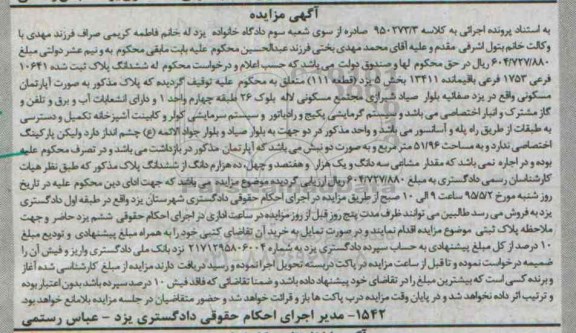 آگهی مزایده
به استناد پرونده اجرائی به کلاسه ۹۵۰۲۷۳/۳ صادره از سوی شعبه سوم دادگاه خانواده یزد له خانم فاطمه کریمی صراف فرزند مهدی با
وکالت خانم بتول اشرفی مقدم و علیه آقای محمد مهدی بختی فرزند عبدالحسین محکوم علیه بابت مابقی محکوم به و نیم عشر دولتی مبلغ
۶۰۴/۷۲۷/۸۸۰ ریال در حق محکوم لها و صندوق دولت می باشد که حسب اعلام و درخواست محکوم له ششدانگ پلاک ثبت شده ۱۰۶۴۱
فرعی ۱۷۵۳ فرعی باقیمانده ۱۳۴۱۱ بخش ۵ یزد (قطعه ۱۱۱) متعلق به محکوم علیه توقیف گردیده که پلاک مذکور به صورت آپارتمان
مسکونی واقع در یزد صفائیه بلوار صیاد شیرازی مجتمع مسکونی لاله بلوک ۲۶ طبقه چهارم واحد ۱ و دارای انشعابات آب و برق و تلفن و
گاز مشترک و انبار اختصاصی می باشد و سیستم گرمایشی پکیج و رادیاتور و سیستم سرمایشی کولر و کابینت آشپزخانه تکمیل و دسترسی
به طبقات از طریق راه پله و آسانسور می باشد و واحد مذکور در دو جهت به بلوار صیاد و بلوار جواد الائمه (ع) چشم انداز دارد ولیکن پارکینگ
اختصاصی ندارد و به مساحت ۵۱/۹۶ متر مربع و به صورت دو نبش می باشد که آپارتمان مذکور در بازداشت می باشد و در تصرف محکوم علیه
بوده و در اجاره نمی باشد که مقدار مشاعی سه دانگ و یک هزار و هفتصد و چهل، ده هزارم دانگ از ششدانگ پلاک مذکور که طبق نظر هیات
کارشناسان رسمی دادگستری به مبلغ ۶۰۴/۷۲۷/۸۸۰ ریال ارزیابی گردیده موضوع مزایده می باشد که جهت ادای دین محکوم علیه در تاریخ
روز شنبه مورخ ۹۵/۵/۲ ساعت ۹ الی ۱۰ صبح از طریق مزایده در اجرای احکام حقوقی دادگستری شهرستان یزد واقع در طبقه اول دادگستری
یزد به فروش می رسد طالبین می توانند ظرف مدت پنج روز قبل از روز مزایده در ساعت اداری در اجرای احکام حقوقی ششم یزد حاضر و جهت
ملاحظه پلاک ثبتی موضوع مزایده اقدام نمایند و در صورت تمایل به خرید آن تقاضای کتبی خود را به همراه مبلغ پیشنهادی و تودیع مبلغ
۱۰ درصد از کل مبلغ پیشنهادی به حساب سپرده دادگستری یزد به شماره ۲۱۷۱۲۹۵۸۰۶۰۰۴ نزد بانک ملی دادگستری واریز و فیش آن را
ضمیمه درخواست نموده و تا قبل از ساعت مزایده در پاکت دربسته تحویل اجرا نموده و رسید دریافت دارند مزایده از مبلغ کارشناسی شده آغاز
و برنده کسی است که بیشترین مبلغ را در تقاضای خود پیشنهاد داده باشد و ضمنا تقاضائی که فاقد فیش ۱۰ درصد سپرده باشد بدون اعتبار بوده
و ترتیب اثر داده نخواهد شد و در پایان وقت مزایده درب پاکت ها باز و قرائت خواهد شد و حضور متقاضیان در جلسه مزایده بلامانع خواهد بود
۱۵۴۲- مدیر اجرای احکام حقوقی دادگستری یزد - عباس رستمی